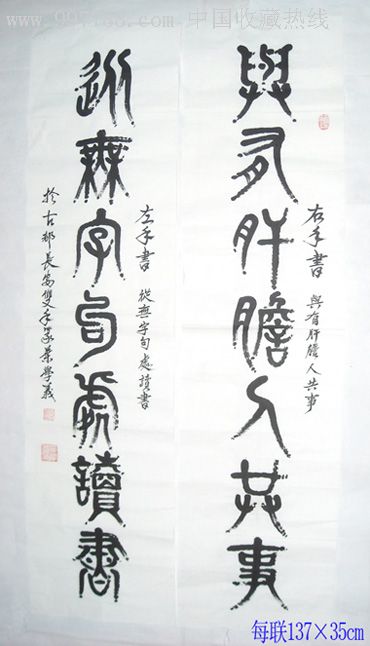 www.997788.com 中国收藏热线
與有肝膽人共事
右手書 與有肝膽人共事
從無字句處讀書
左手書 從無字句處讀書
於古都長安雙手
學義
每联137×35cm